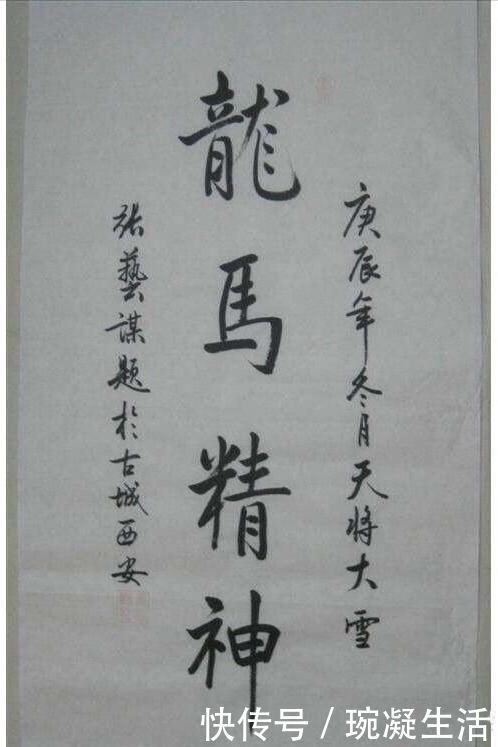 庚辰年冬月天将大雪
龍馬精神
張藝謀題於古城西安
快传号/琬凝生活